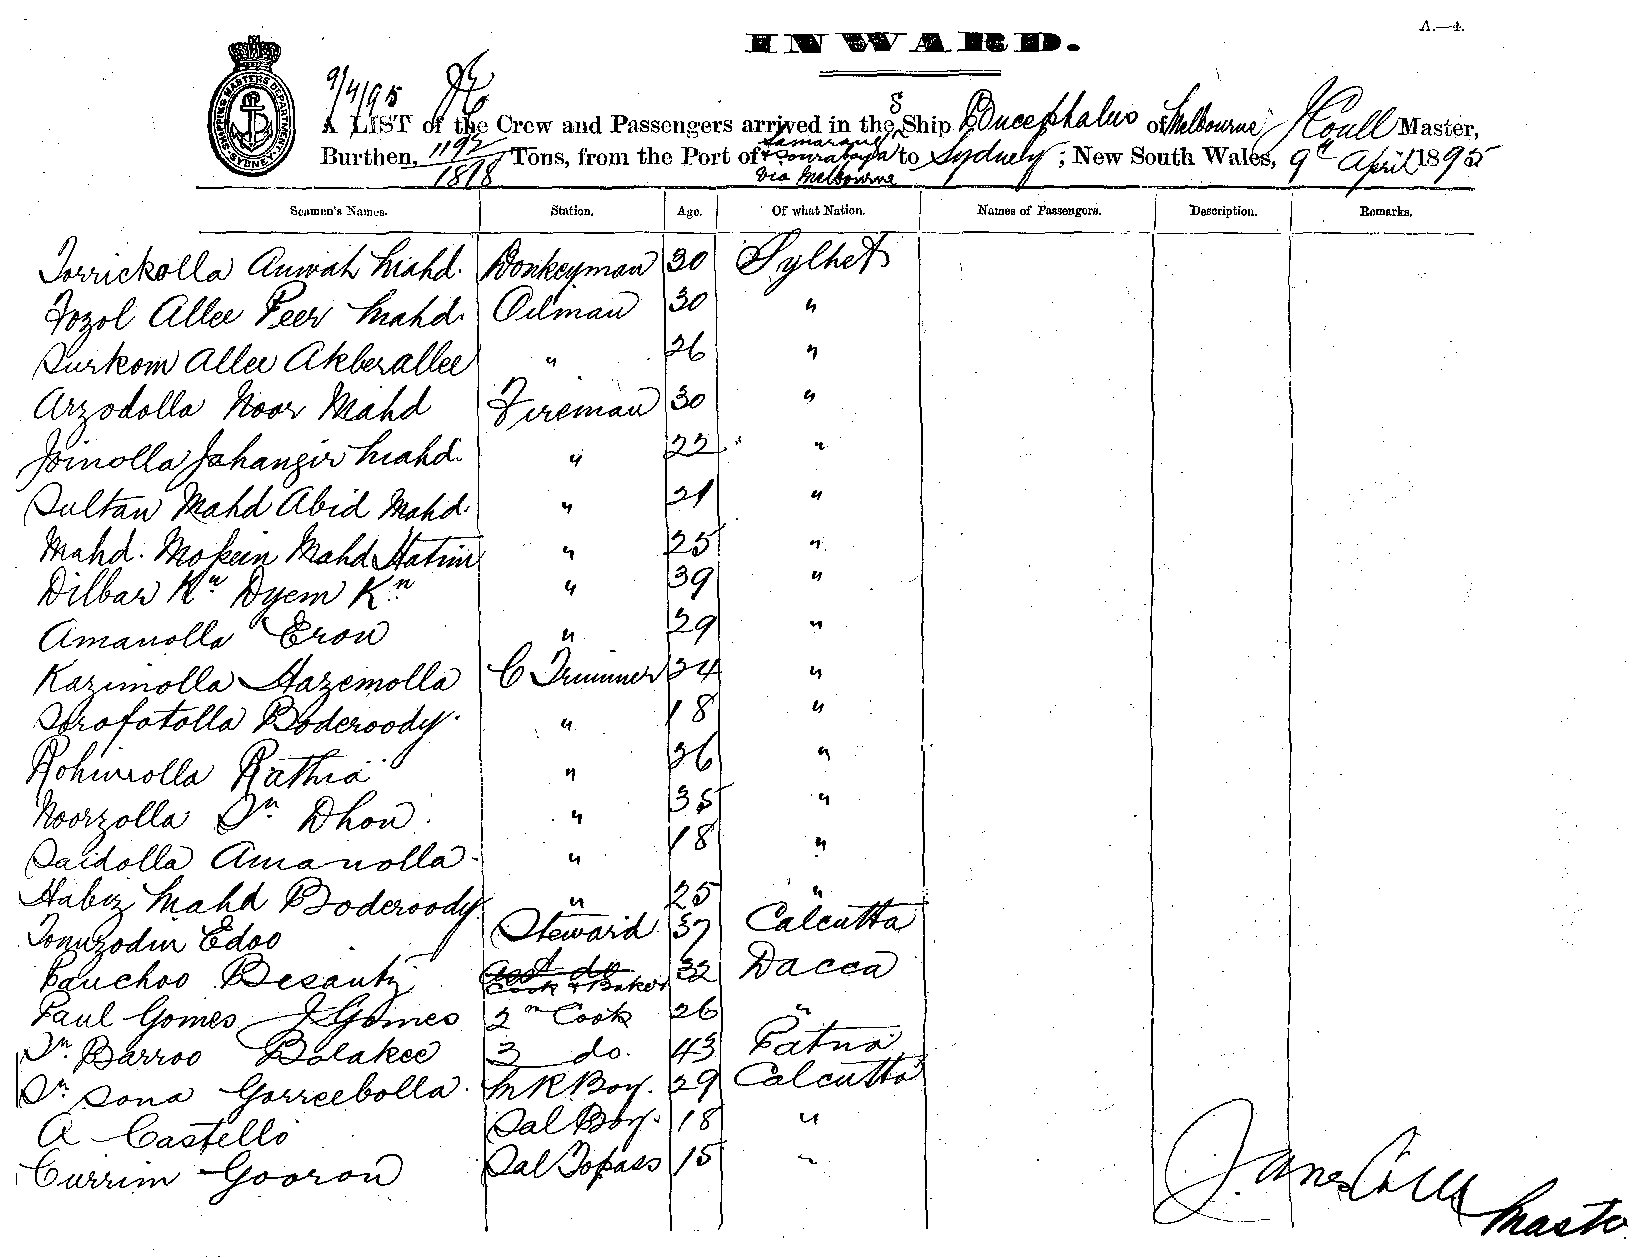 A.—4.
INWARD.
SHIPPING MASTERS DEPARTMENT SYDNEY
9/4/95
A LIST of the Crew and Passengers arrived in the S Ship Bucephalus of Melbourne J Coull Master,
Burthen, 1192/1818 Tons, from the Port of Samarang & Sourabaya via Melbourne to Sydney; New South Wales, 9th April 1895
Seamen's Names. Station. Age. Of what Nation. Names of Passengers. Description. Remarks.
Torrickolla Anwah Mahd. Donkeyman 30 Sylhet
Fozol Allee Peer Mahd. Oilman 30 "
Surkom Allee Akberallee " 26 "
Arzodolla Noor Mahd Fireman 30 "
Joinolla Jahangir Mahd. " 22 "
Sultan Mahd Abid Mahd. " 21 "
Mahd. Mokein Mahd Hatim " 25 "
Dilbar Kn Dyem Kn " 39 "
Amanolla Eron " 29 "
Kazimolla Hazemolla C Trimmer 24 "
Sorofotolla Boderoody. " 18 "
Rohimolla Rathia " 26 "
Noorzolla Sn. Dhon. " 35 "
Saidolla Amanolla " 18 "
Habiz Mahd Boderoody " 25 "
Tonuzodin Edoo Steward 37 Calcutta
Panchoo Besanti Cook & Baker 32 Dacca
Paul Gomes J Gomes 2n Cook 26 "
Sn. Barroo Bolakee 3 do. 43 Patna
Sn. Sona Gorreebolla. M R Boy. 29 Calcutta
A Castello Sal Boy. 18 "
Currim Gooron Sal Topass 15 "
James Coull
Master